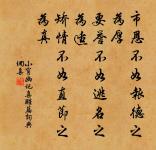 市恩不如報德之
為厚
要譽不如逃名之
為適
矯情不如直節之
為真
小窗幽記集醒篇詞典